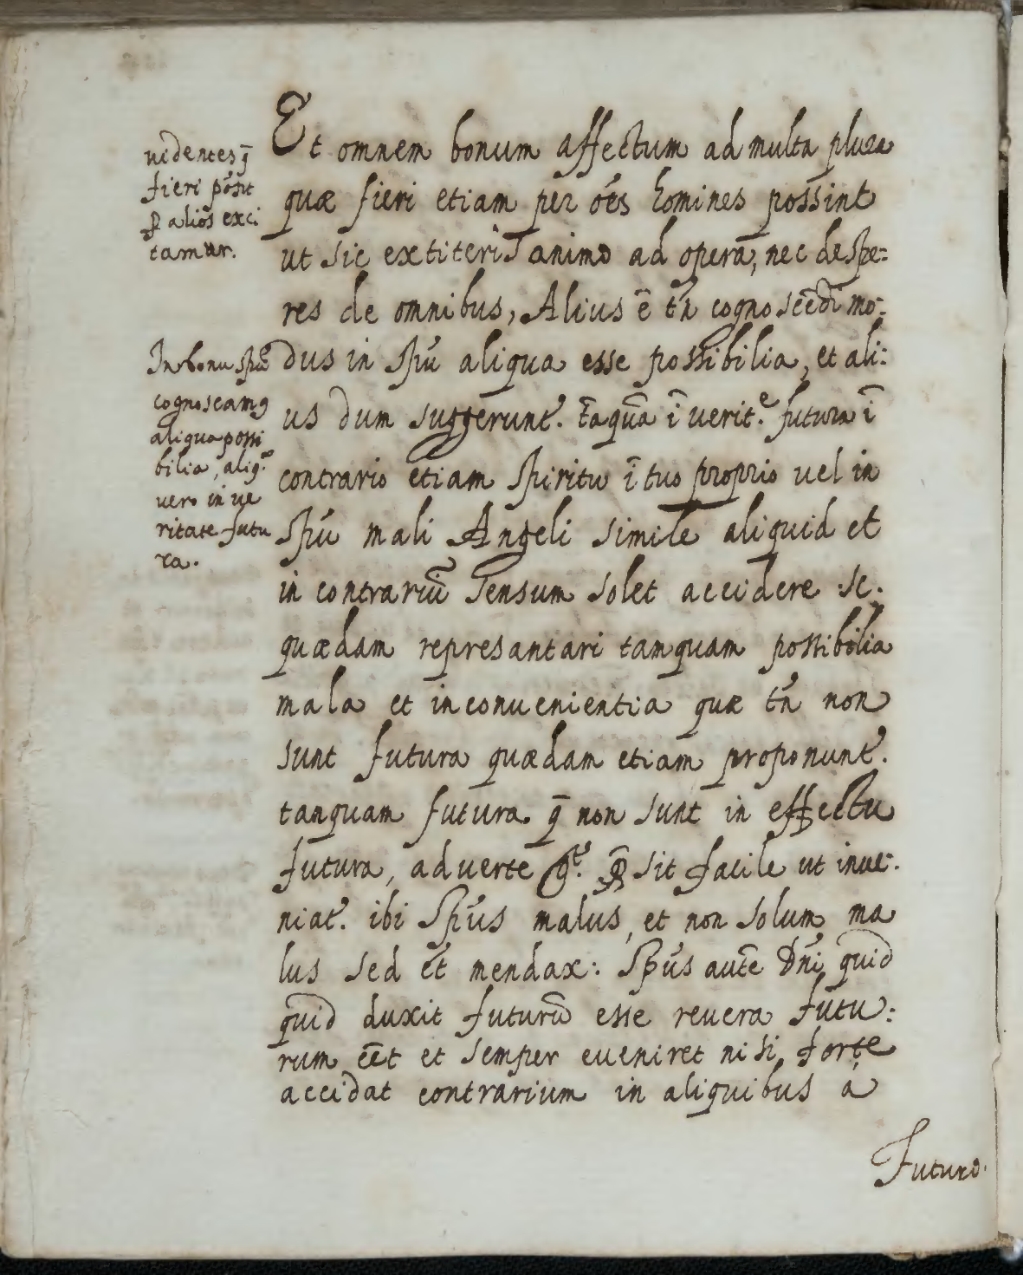 Et omnem bonum affectum ad multa plura
quæ fieri etiam per oēs homines possint
ut sic extiteris animo ad opera, nec despe:
res de omnibus, Alius ē tn̄ cognoscēdi mo:
dus in spū aliqua esse possibilia, et ali:
us dum suggerunt.^r tāquā ī verit.^e futura ī
contrario etiam spiritu ī tuo proprio vel in
spū mali Angeli simile aliquid et
in contrariū sensum solet accidere sc.
quædam represantari tamquam possibilia
mala et inconuenientia quæ tn̄ non
sunt futura quædam etiam proponunt.^r
tanquam futura q̄ non sunt in effectu
futura, aduerte sit facile ut inue:
niat.^r ibi Spūs malus, et non solum ma
lus sed ēt mendax: Spūs autē Dn̄i quid
quid duxit futurū esse revera futu:
rum ēēt et semper eueniret nisi forte
accidat contrarium in aliquibus à
Futuro.
uidentes q̄
fieri pōsit
ꝑ alios exci
tamur.
In bonu spū
cognoscamꝯ
aliqua possi
bilia, aliq.^a
vero in ue
ritate futu
ra.